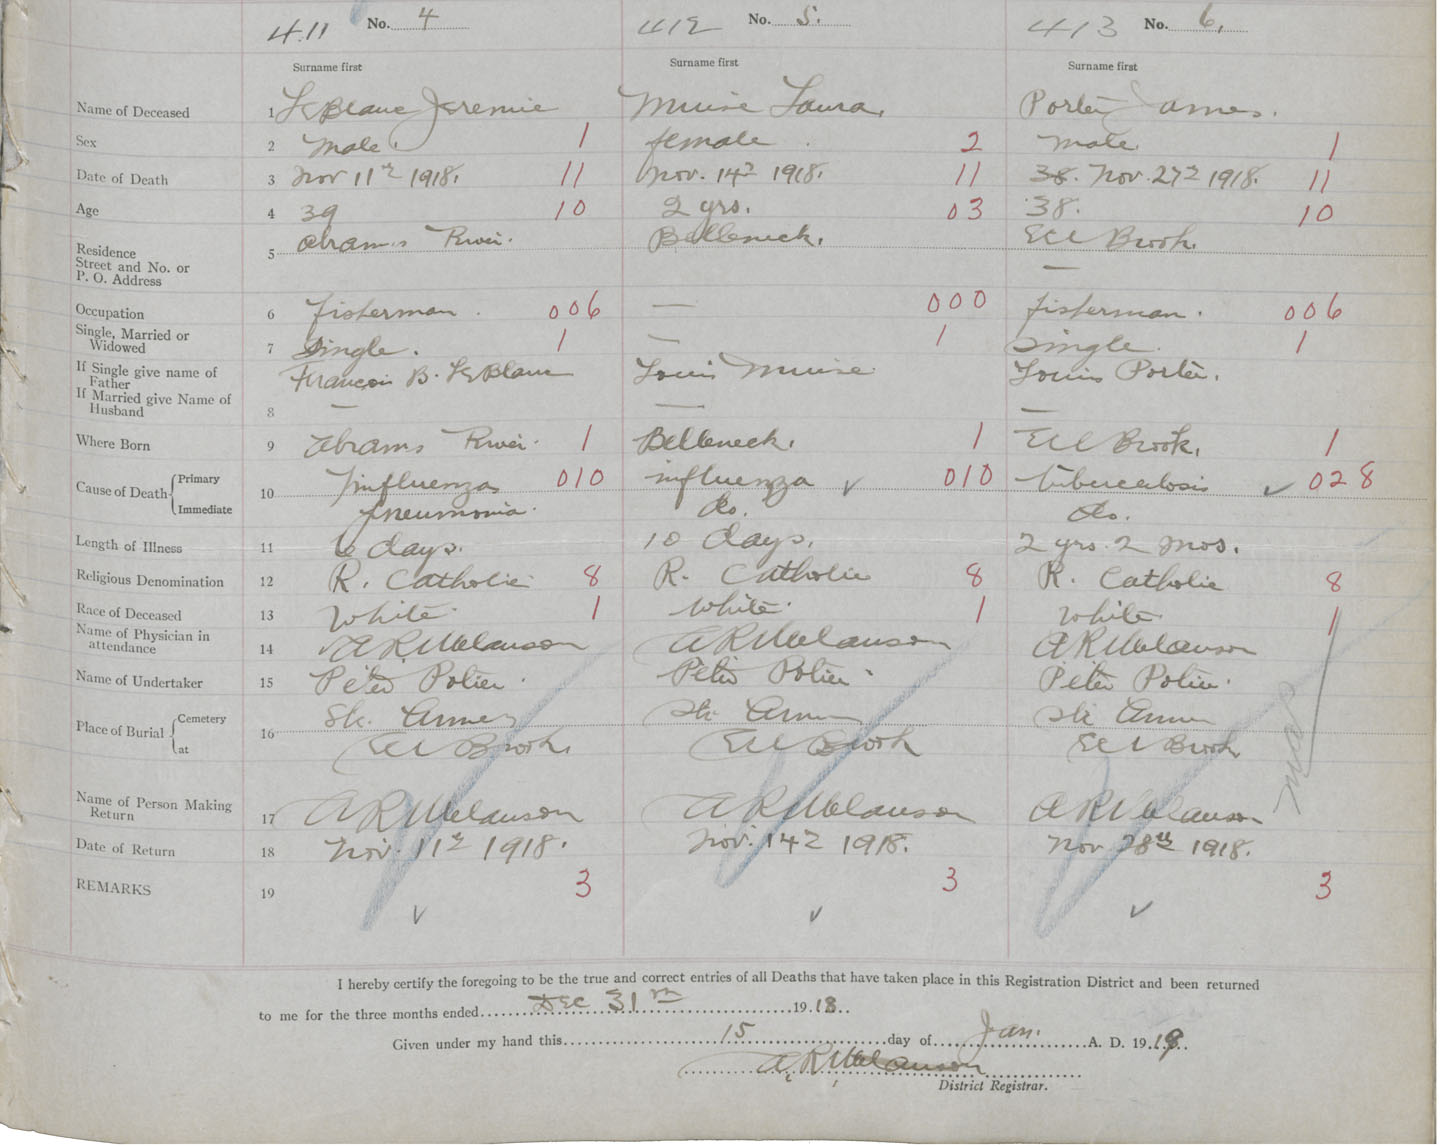 411 No. 4 412 No. 5. 413 No. 6.
Surname first Surname first Surname first
Name of Deceased 1 LeBlanc Jeremie Muise Laura. Porter James.
Sex 2 male. 1 female 2 male 1
Date of Death 3 Nov 11th 1918. 11 Nov. 14th 1918. 11 38. Nov. 27th 1918. 11
Age 4 39 10 2 yrs. 03 38. 10
Residence
Street and No. or
P. O. Address
5 Abrams River. Belleneck. Eel Brook. —
Occupation 6 fisherman. 006 — 000 fisherman. 006
Single, Married or
Widowed
7 single. 1 — 1 single. 1
If Single give name of
Father
Francois B. LeBlanc Louis Muise Louis Porter.
If Married give Name of
Husband
8 — — —
Where Born 9 Abrams River. 1 Belleneck. 1 Eel Brook. 1
Cause of Death Primary 10 influenza 010 influenza 010 tuberculosis 028
Immediate pneumonia. do. do.
Length of Illness 11 6 days. 10 days. 2 yrs. 2 mos.
Religious Denomination 12 R. Catholic 8 R. Catholic 8 R. Catholic 8
Race of Deceased 13 White. 1 White. 1 White 1
Name of Physician in
attendance
14 A R Melanson A R Melanson A R Melanson
Name of Undertaker 15 Peter Potier. Peter Potier. Peter Potier.
Place of Burial Cemetery 16 Ste. Annes Ste Annes Ste Annes
at Eel Brook. Eel Brook Eel Brook
Name of Person Making
Return
17 A R Melanson A R Melanson A R Melanson
Date of Return 18 Nov. 11th 1918. Nov. 14th 1918. Nov 28th 1918.
REMARKS 19 3 3 3
I hereby certify the foregoing to be the true and correct entries of all Deaths that have taken place in this Registration District and been returned
to me for the three months ended Dec 31st 1918.
Given under my hand this 15 day of Jan. A. D. 1919.
A R Melanson
District Registrar.